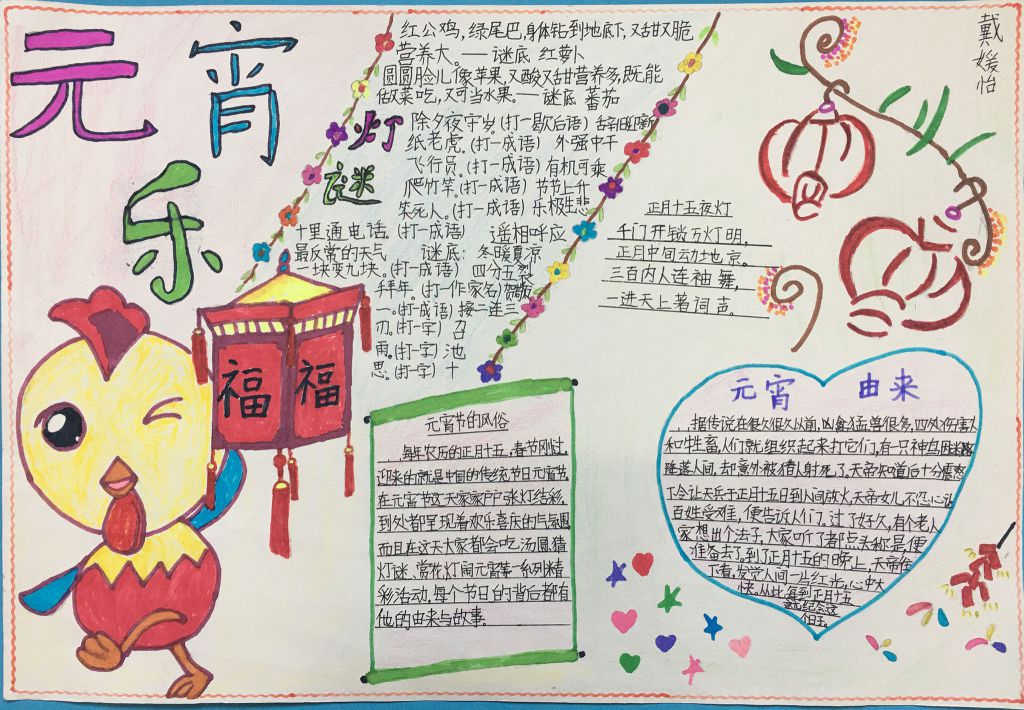 元宵乐
戴媛怡
灯谜
红公鸡,绿尾巴,身体钻到地底下,又甜又脆
营养大。——谜底 红萝卜
圆圆脸儿像苹果,又酸又甜营养多,既能
做菜吃,又可当水果。——谜底 蕃茄
除夕夜守岁。(打一歇后语) 辞旧迎新
纸老虎。(打一成语) 外强中干
飞行员。(打一成语) 有机可乘
爬竹竿。(打一成语) 节节上升
笑死人。(打一成语) 乐极生悲
十里通电话 (打一成语) 遥相呼应
最反常的天气 谜底: 冬暖夏凉
一块变九块。(打一成语) 四分五裂
拜年。(打一作家名)
一。(打一成语) 接二连三
刃。(打一字) 召
雨。(打一字) 池
思。(打一字) 十
正月十五夜灯
千门开锁万灯明,
正月中间动地京。
三百内人连袖舞,
一进天上著词声。
福 福
元宵节的风俗
每年农历的正月十五,春节刚过,
迎来的就是中国的传统节日元宵节。
在元宵节这天家家户户张灯结彩,
到处都呈现着欢乐喜庆的气氛。
而且在这天大家都会吃汤圆,猜
灯谜、赏花灯闹元宵等一系列精
彩活动,每个节日的背后都有
他的由来与故事。
元宵 由来
据传说在很久很久以前,凶禽猛兽很多,四处伤害人
和牲畜,人们就组织起来打它们,有一只神鸟因迷路
降落人间,却意外被猎人射死了,天帝知道后十分震怒
了令让天兵于正月十五日到人间放火,天帝女儿不忍心让
百姓受难,便告诉人们了。过了好久,有个老人
家想出个法子,大家听了都点头称是,便
准备去了,到了正月十五的晚上,天帝往
下看,发觉人间一片红光,心中大
快。从此每到正月十五
都纪念这
个日子。